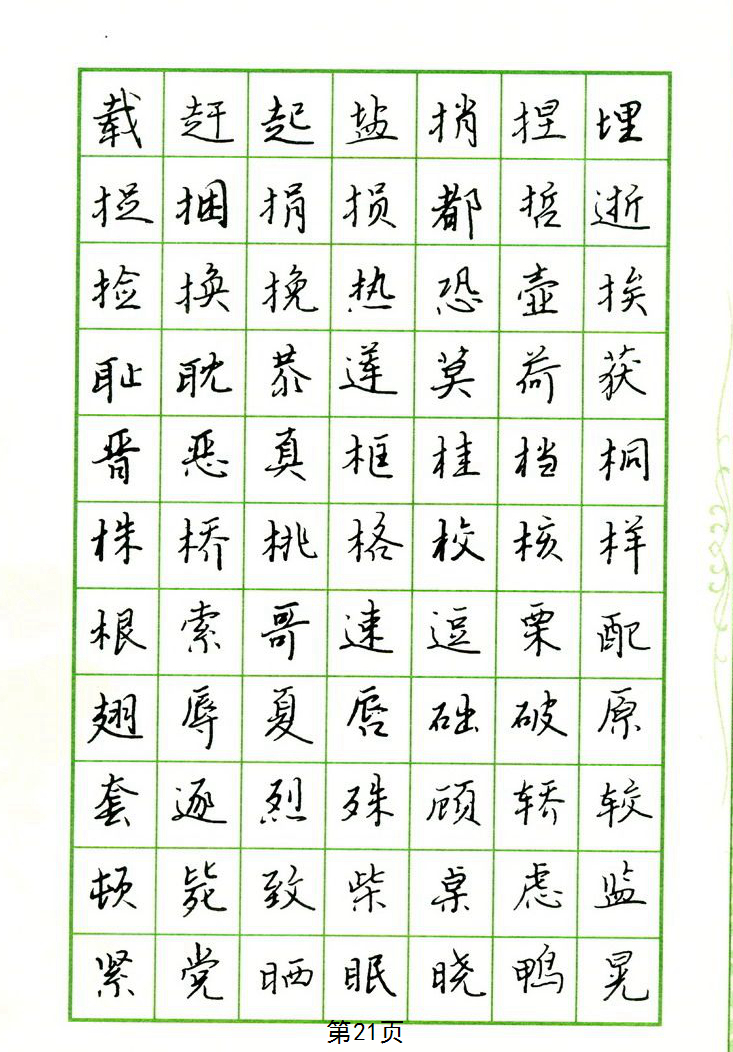 载赶起盐捎捏埋
捉捆捐损都哲逝
捡换挽热恐壶挨
耻耽恭莲莫荷获
晋恶真框桂档桐
株桥桃格校核样
根索哥速逗栗配
翅辱夏唇础破原
套逐烈殊顾轿较
顿毙致柴桌虑监
紧党晒眠晓鸭晃
第21页